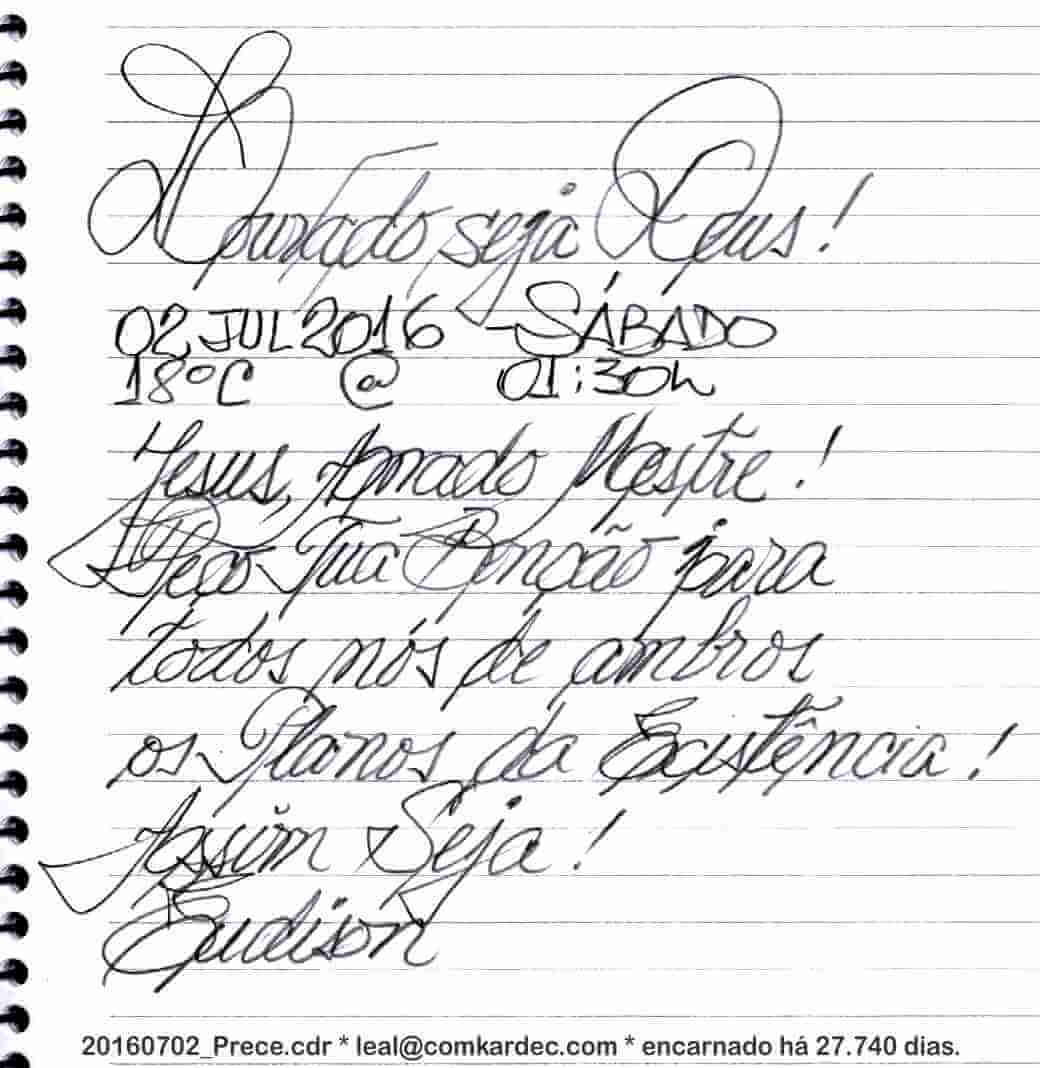 Louvado seja Deus!
02 JUL 2016 - SÁBADO
18°C @ 01:30h
Jesus, Amado Mestre!
Peço Tua Benção para
todos nós de ambos
os Planos da Existência!
Assim Seja!
Eudison
20160702_Prece.cdr * leal@comkardec.com * encarnado há 27.740 dias.